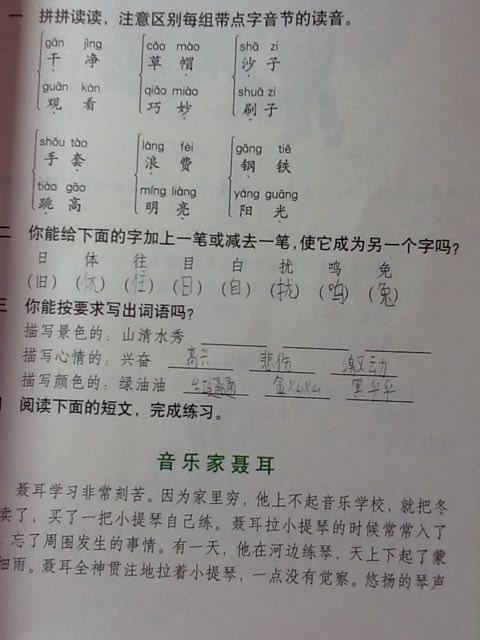 一 拼拼读读，注意区别每组带点字音节的读音。
gān jìng cǎo mào shā zi
干 净 草 帽 沙 子
guān kàn qiǎo miào shuā zi
观 看 巧 妙 刷 子
shǒu tào làng fèi gāng tiě
手 套 浪 费 钢 铁
tiào gāo míng liàng yáng guāng
跳 高 明 亮 阳 光
二 你能给下面的字加上一笔或减去一笔，使它成为另一个字吗？
日 体 往 目 白 扰 鸣 免
(旧) (休) (住) (日) (自) (扰) (鸣) (兔)
三 你能按要求写出词语吗？
描写景色的：山清水秀
描写心情的：兴奋 高兴 悲伤 激动
描写颜色的：绿油油 红通通 金灿灿 黑
阅读下面的短文，完成练习。
音乐家聂耳
聂耳学习非常刻苦。因为家里穷，他上不起音乐学校，就把冬
卖了，买了一把小提琴自己练。聂耳拉小提琴的时候常常入了
，忘了周围发生的事情。有一天，他在河边练琴，天上下起了蒙
细雨。聂耳全神贯注地拉着小提琴，一点没有觉察。悠扬的琴声